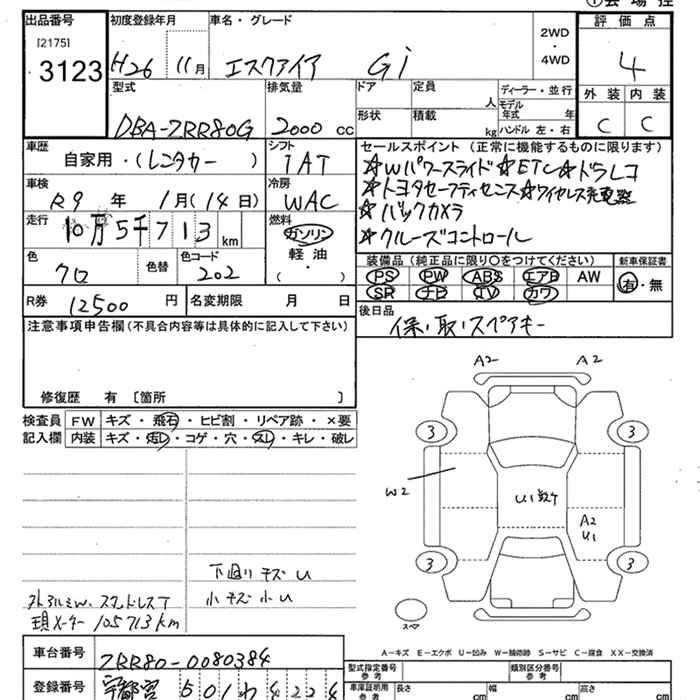 出品番号 初度登録年月 車名・グレード 2WD・4WD 評価点
[2175]
3123 H26 11月 エスクァイア Gi 4
型式 排気量 ドア 定員 人 ディーラー・並行 外装 内装
モデル年式 年
DBA-ZRR80G 2000 cc 形状 積載 kg ハンドル 左・右 C C
車歴 シフト セールスポイント(正常に機能するものに限ります)
自家用・(レンタカー) IAT ☆Wパワースライド☆ETC☆ドラレコ
車検 冷房 ☆トヨタセーフティセンス☆ワイヤレス充電器
R9 年 1月(14日) WAC ☆バックカメラ
走行 燃料
10万5千713 km ガソリン ☆クルーズコントロール
色 色替 色コード 軽油 装備品(純正品に限り○をつけてください) 新車保証書
クロ 202 ・ ( ) PS PW ABS エアB AW 有・無
SR ナビ TV カワ
R券 12500 円 名変期限 月 日 後日品
注意事項申告欄(不具合内容等は具体的に記入して下さい) 保、取、スペアキー
修復歴 有 〔箇所 〕
検査員 FW キズ・飛石・ヒビ割・リペア跡・×要
記入欄 内装 キズ・汚レ・コゲ・穴・スレ・キレ・破レ
A2 A2
3 3
W2
U1
A2
U1
3 3
スペア
下廻りキズU
小キズ小U
現メーター105713km
A-キズ E-エクボ U-凹み W-補修跡 S-サビ C-腐食 XX-交換済
車台番号 ZRR80-0080384
型式指定番号 参考 類別区分番号 参考
登録番号 宇都宮 501 わ 4224
車庫証明用 参考 長さ cm 幅 cm 高さ cm